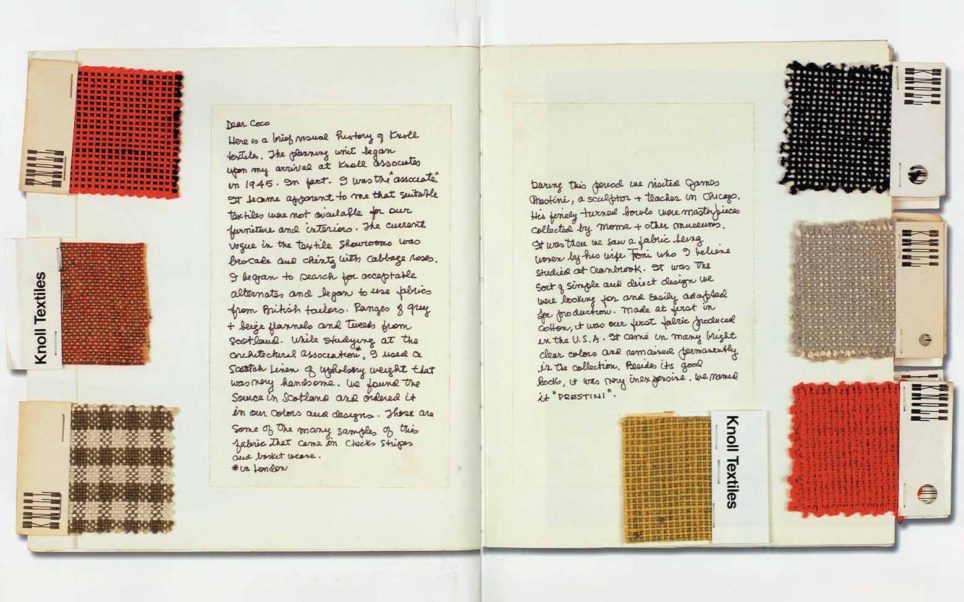 Dear Coco
Here is a brief visual history of Knoll
textiles. The planning unit began
upon my arrival at Knoll Associates
in 1945. In fact. I was the "associate".
It became apparent to me that suitable
textiles were not available for our
furniture and interiors. The current
vogue in the textile showrooms was
brocade and chintz with cabbage roses.
I began to search for acceptable
alternates and began to use fabrics
from British tailors. Ranges of grey
+ beige flannels and tweeds from
Scotland. While studying at the
architectural association*, I used a
Scottish linen of upholstry weight that
was very handsome. We found the
source in Scotland and ordered it
in our colors and designs. These are
some of the many samples of this
fabric that came in checks stripes
and basket weave.
* in London
During this period we visited James
Prestini, a sculptor + teacher in Chicago.
His finely turned bowls were masterpieces
collected by MoMA + other museums.
It was there we saw a fabric being
woven by his wife Toni who I believe
studied at Cranbrook. It was the
sort of simple and direct design we
were looking for and easily adapted
for production. Made at first in
cotton, it was our first fabric produced
in the U.S.A. It came in many bright
clear colors and remained permanently
in the collection. Besides its good
looks, it was very inexpensive. We named
it "PRESTINI".
KNOLL
Knoll Textiles
KNOLL
KNOLL
KNOLL
KNOLL
Knoll Textiles